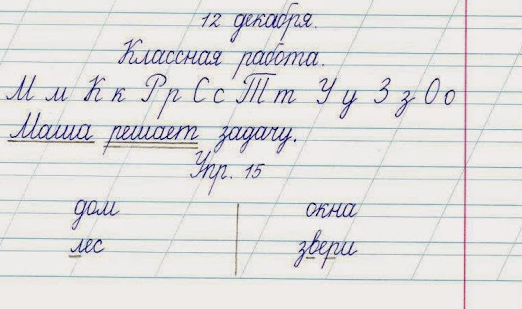 12 декабря.
Классная работа.
М м К к Р р С с Т т У у З з О о
Маша решает задачу.
Упр. 15
дом окна
лес звери